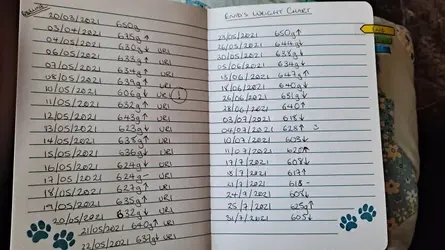 20/03/2021 650g
03/04/2021 635g↑
04/05/2021 630g↓ URI
06/05/2021 633g↑ URI
07/05/2021 634g↑ URI
08/05/2021 639g URI
10/05/2021 606g↓ URI
11/05/2021 632g↑ URI
12/05/2021 643g↑ URI
13/05/2021 623g↓ URI
14/05/2021 638g↑ URI
15/05/2021 636g↓ URI
16/05/2021 624g↓ URI
17/05/2021 624g- URI
18/05/2021 627g↑ URI
19/05/2021 635g↑ URI
20/05/2021 632g↓ URI
21/05/2021 640g↑ URI
22/05/2021 639g↓ URI
ENID'S WEIGHT CHART
23/05/2021 650g↑
26/05/2021 644g↓
30/05/2021 638g↓
05/06/2021 634g↓
13/06/2021 647g↑
18/06/2021 640g↓
26/06/2021 651g↓
28/06/2021 640↑
03/07/2021 618↓
04/07/2021 628↑
10/07/2021 603↓
11/07/2021 625↑
17/7/2021 608↓
18/7/2021 617↑
21/7/2021 618-
24/7/2021 608↓
25/7/2021 625g↑
31/7/2021 605↓